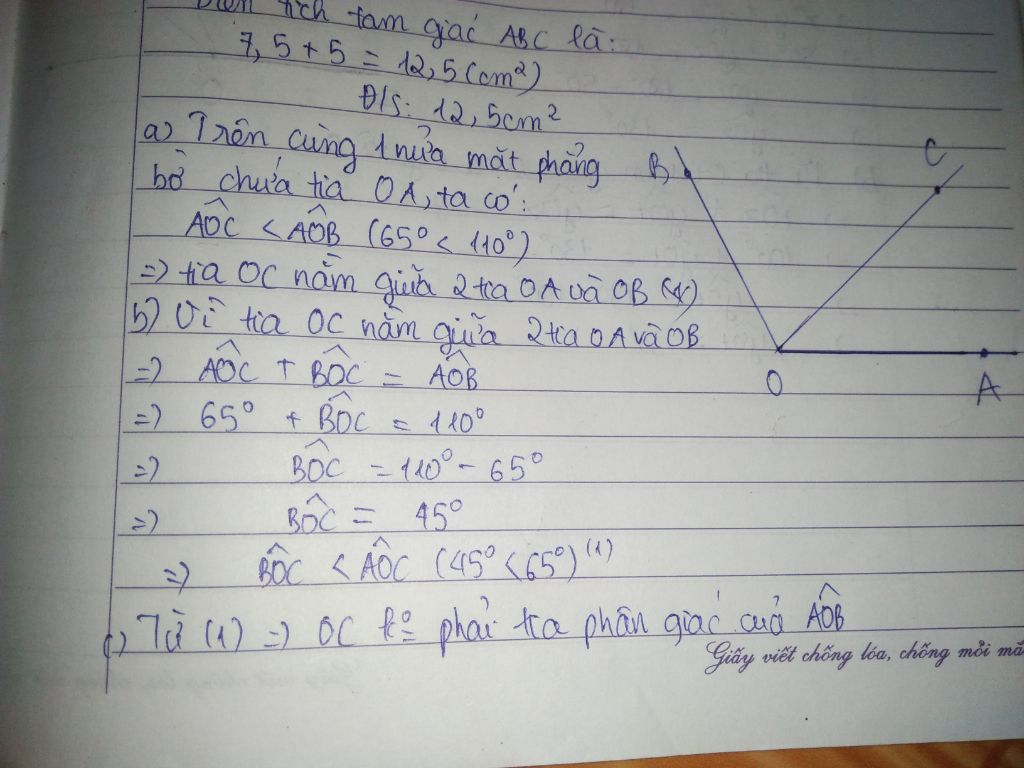 Diện tích tam giác ABC là:
7,5 + 5 = 12,5 (cm²)
Đ/S: 12,5cm²
a) Trên cùng 1 nửa mặt phẳng
bờ chứa tia OA, ta có:
AÔC < AÔB (65° < 110°)
=) tia OC nằm giữa 2 tia OA và OB
b) Vì tia OC nằm giữa 2 tia OA và OB
=) AÔC + BÔC = AÔB
=) 65° + BÔC = 110°
=) BÔC = 110° - 65°
=) BÔC = 45°
=) BÔC < AÔC (45° < 65°) (1)
c) Từ (1) =) OC k° phải tia phân giác của AÔB
B
C
O
A
Giấy viết chống lóa, chống mỏi mắ